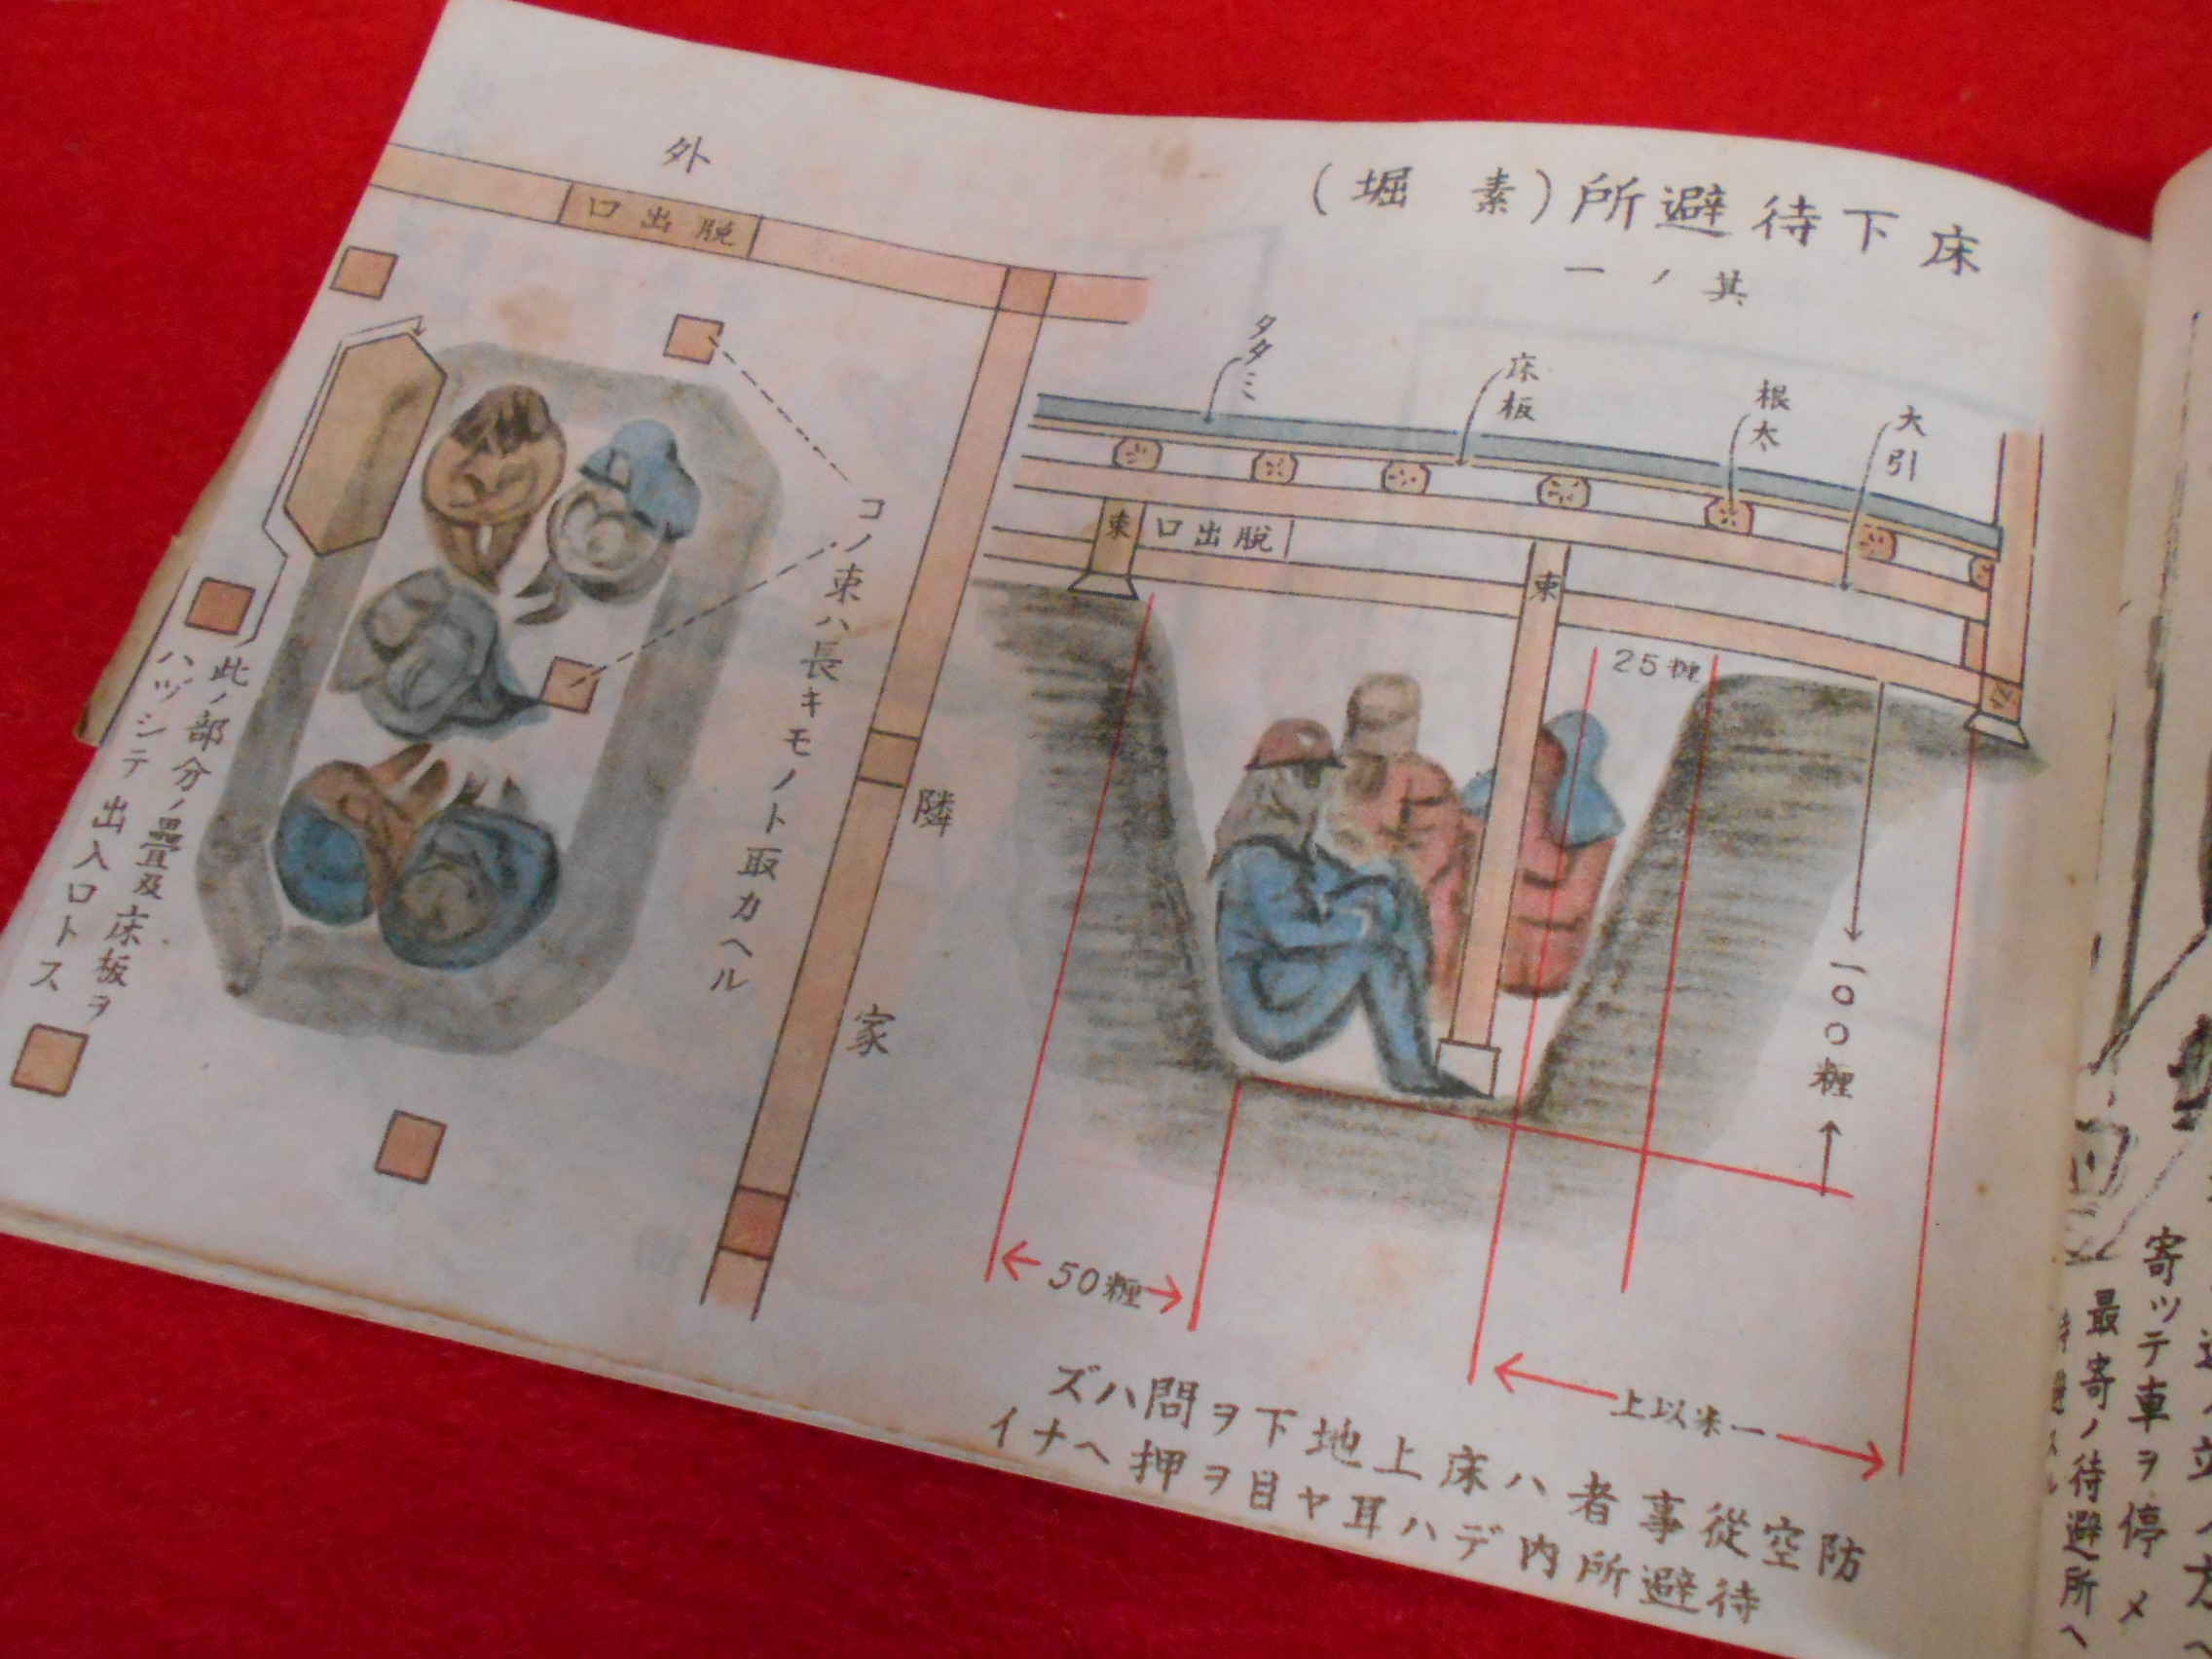 床下待避所(素堀)
其ノ一
タタミ
床板
根太
大引
束
脱出口
束
25糎
一〇〇糎
50糎
一米以上
防空從事者ハ床上地下ヲ問ハズ
待避所内デハ耳ヤ目ヲ押ヘナイ
外
脱出口
コノ束ハ長キモノト取カヘル
隣家
此ノ部分ノ疊及床板ヲ
ハヅシテ出入口トス
寄ツテ車ヲ停メ
最寄ノ待避所ヘ